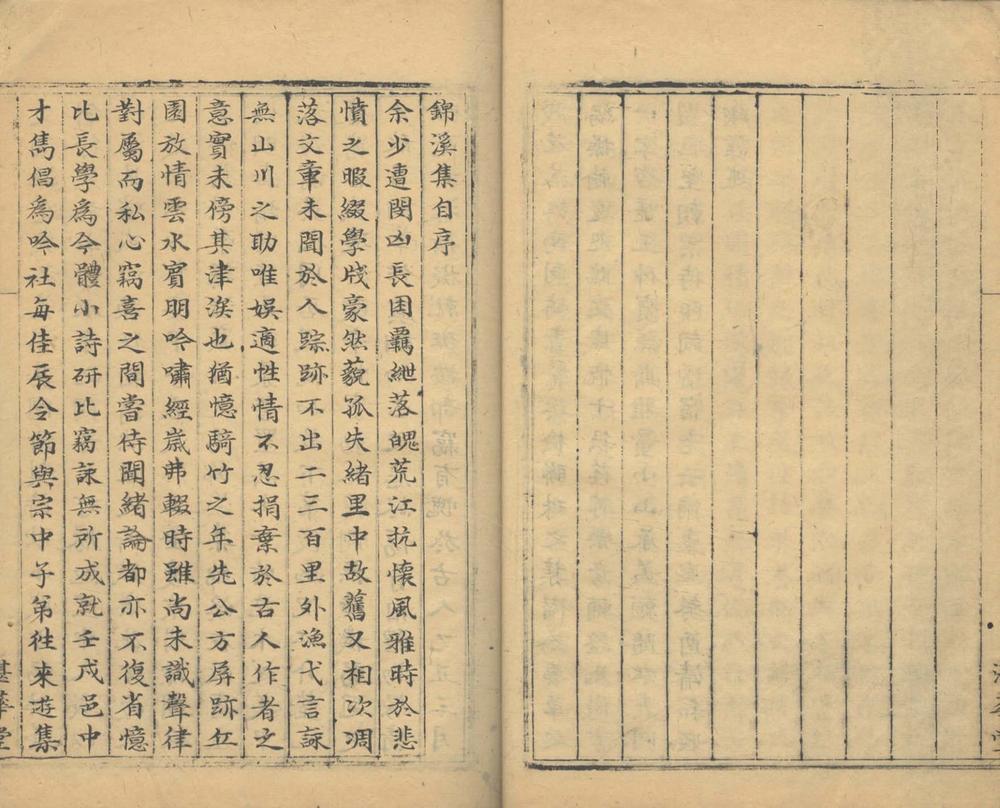 錦溪集自序
余少遭閔凶長困羈紲落魄荒江抗懷風雅時於悲
憤之暇綴學牋豪然藐孤失緒里中故舊又相次凋
落文章未聞於人踪跡不出二三百里外漁弋言詠
無山川之助唯娛適性情不忍捐棄於古人作者之
意實未傍其津涘也猶憶騎竹之年先公方屏跡丘
園放情雲水賓朋吟嘯經歲弗輟時雖尚未識聲律
對屬而私心竊喜之間嘗侍聞緒論都亦不復省憶
比長學為今體小詩研比竊詠無所成就壬戌邑中
才雋倡為吟社每佳辰令節與宗中子弟徃來遊集
堂